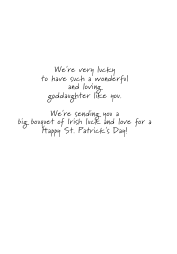 We're very lucky
to have such a wonderful
and loving
goddaughter like you.
We're sending you a
big bouquet of Irish luck and love for a
Happy St. Patrick's Day!